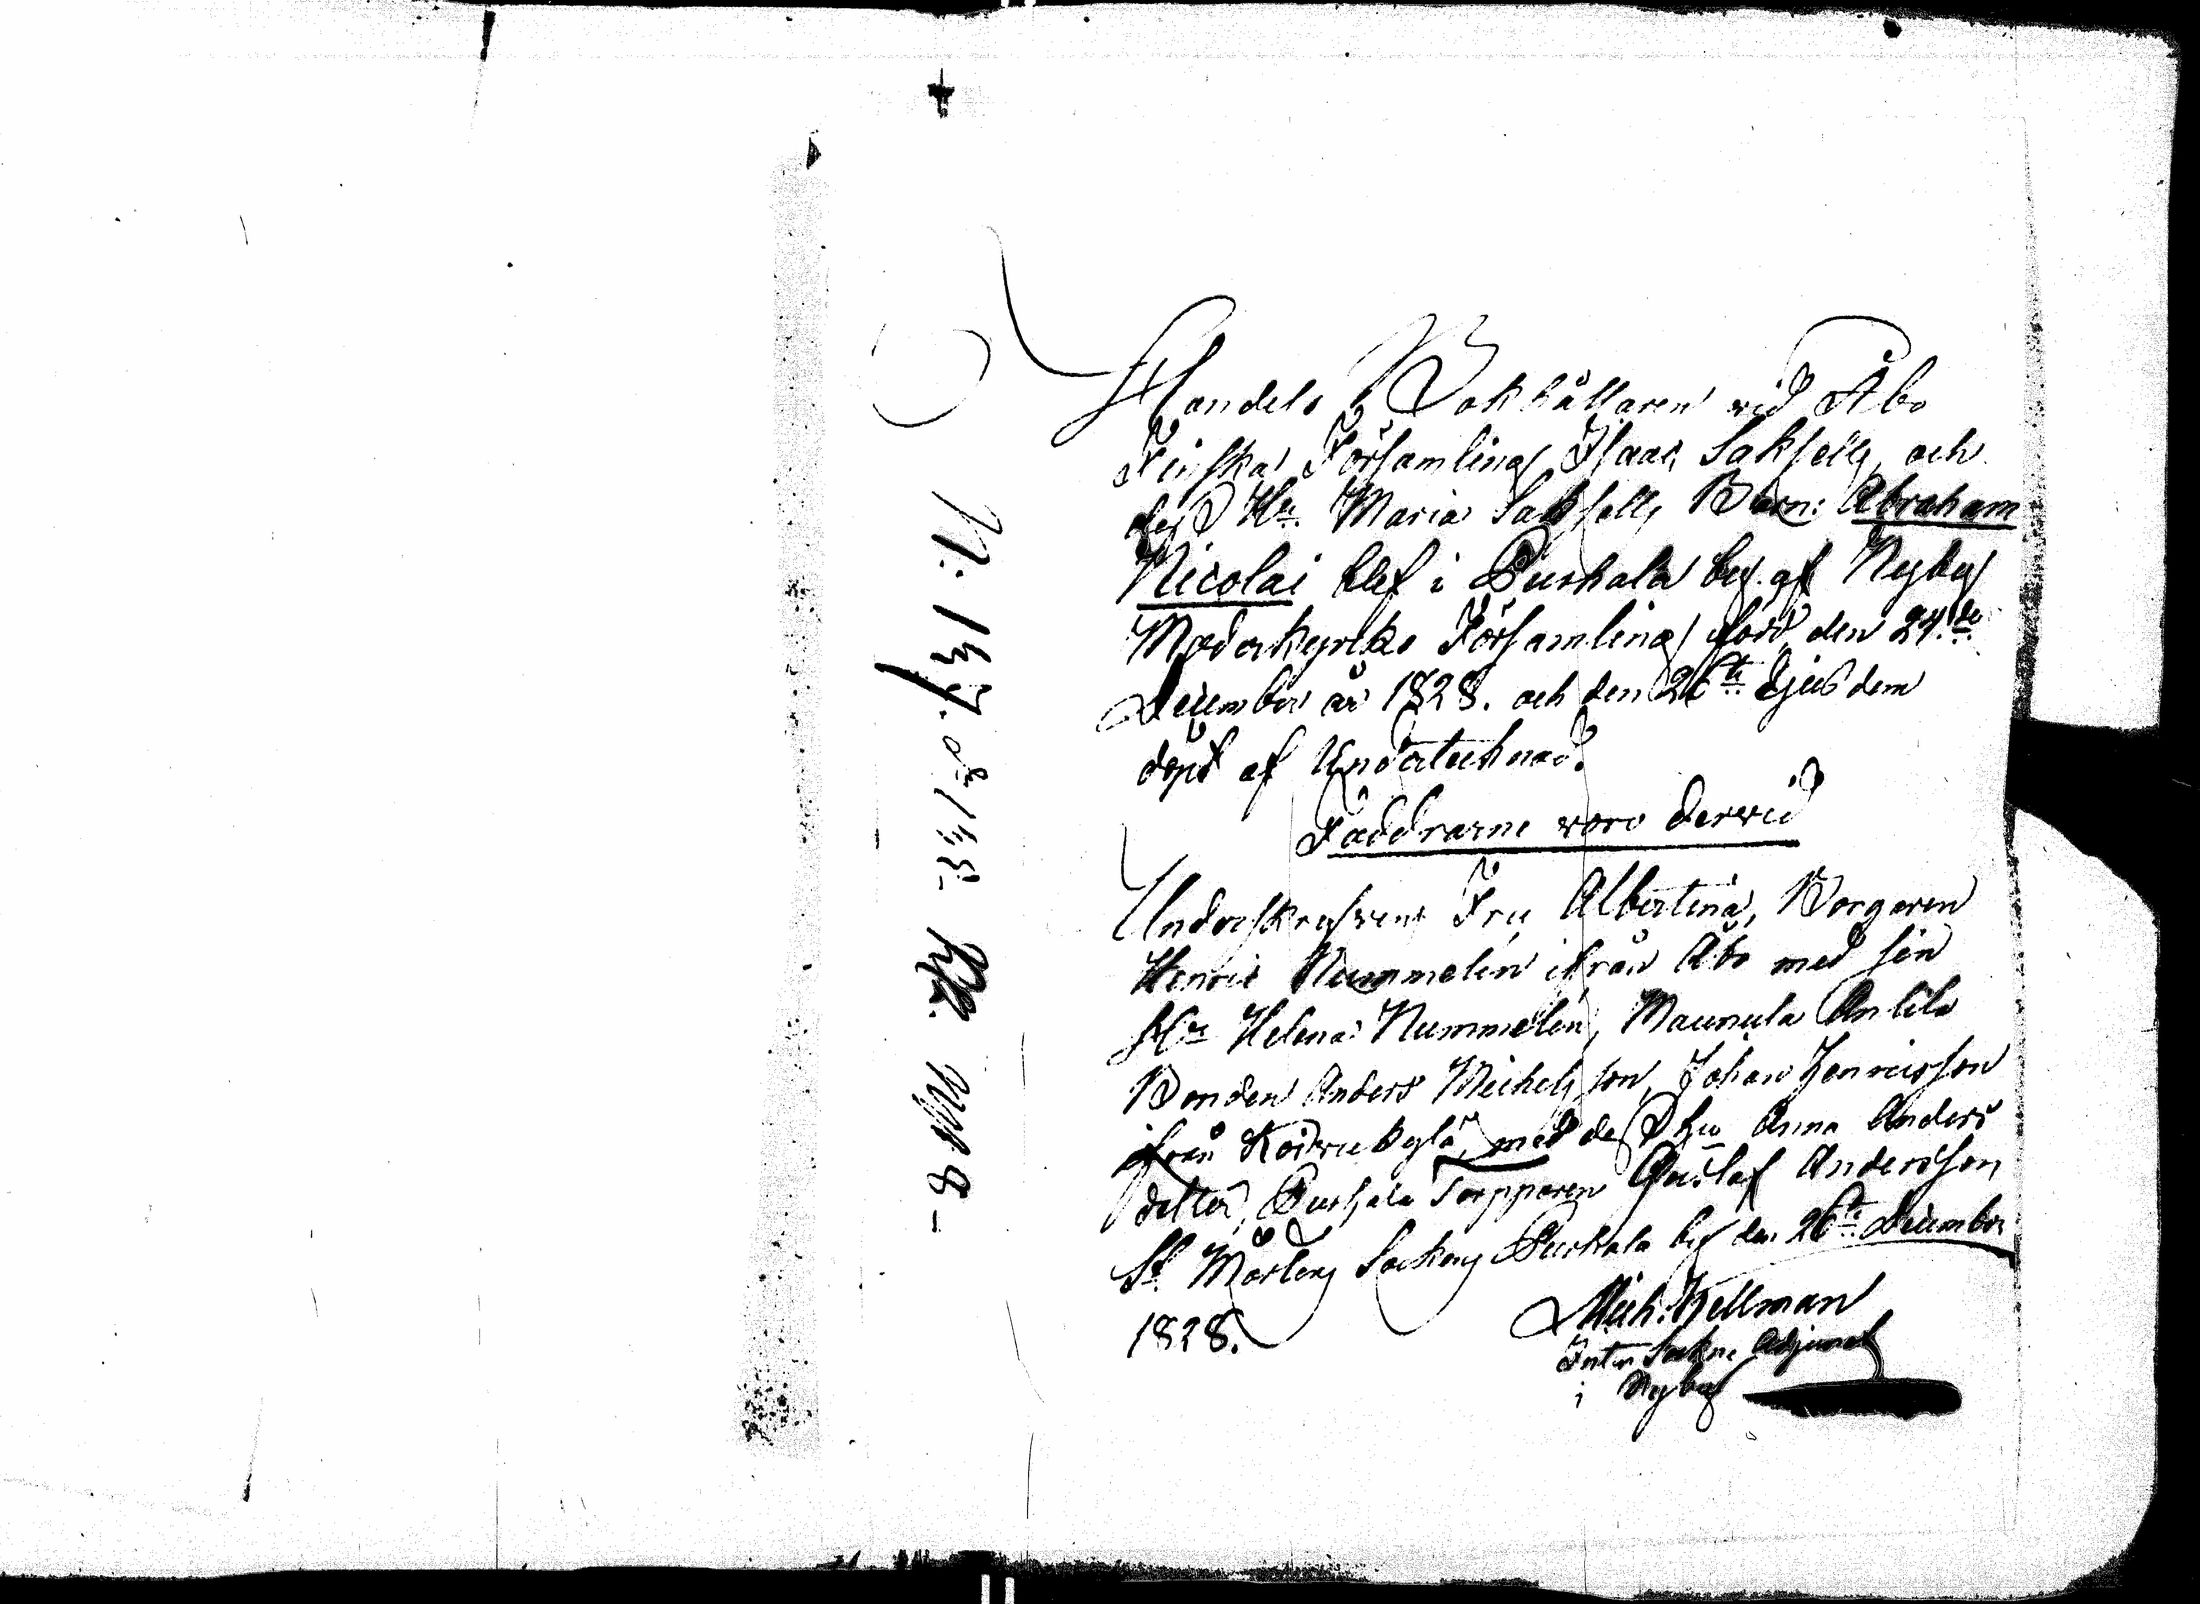 Handels Bokhållaren wid Åbo
Finska Församling Isaac Saksell, och
dess Hu. Maria Saksell, Barn: Abraham
Nicolai blef i Purhala by af Nyby
Moderkyrko Församling född den 24de
December år 1828. och den 26te Ejusdem
döpt af Undertecknad.
Faddrarne woro derwid
Underskrefwens Fru Albertina, Borgaren
Henric Nummelin ifrån Åbo med sin
Hu Helena Nummelin, Maunula Anlila
Bonden Anders Michelsson, Johan Henricsson
ifrån Koiwukylä, med dess hu Anna Anders
dotter, Purhala Torpparen Gustaf Andersson,
St. Mårtens Sockens Purhala by den 26te December
1828.
Mich: Kellman
Sockne Adjunct
i Nyby